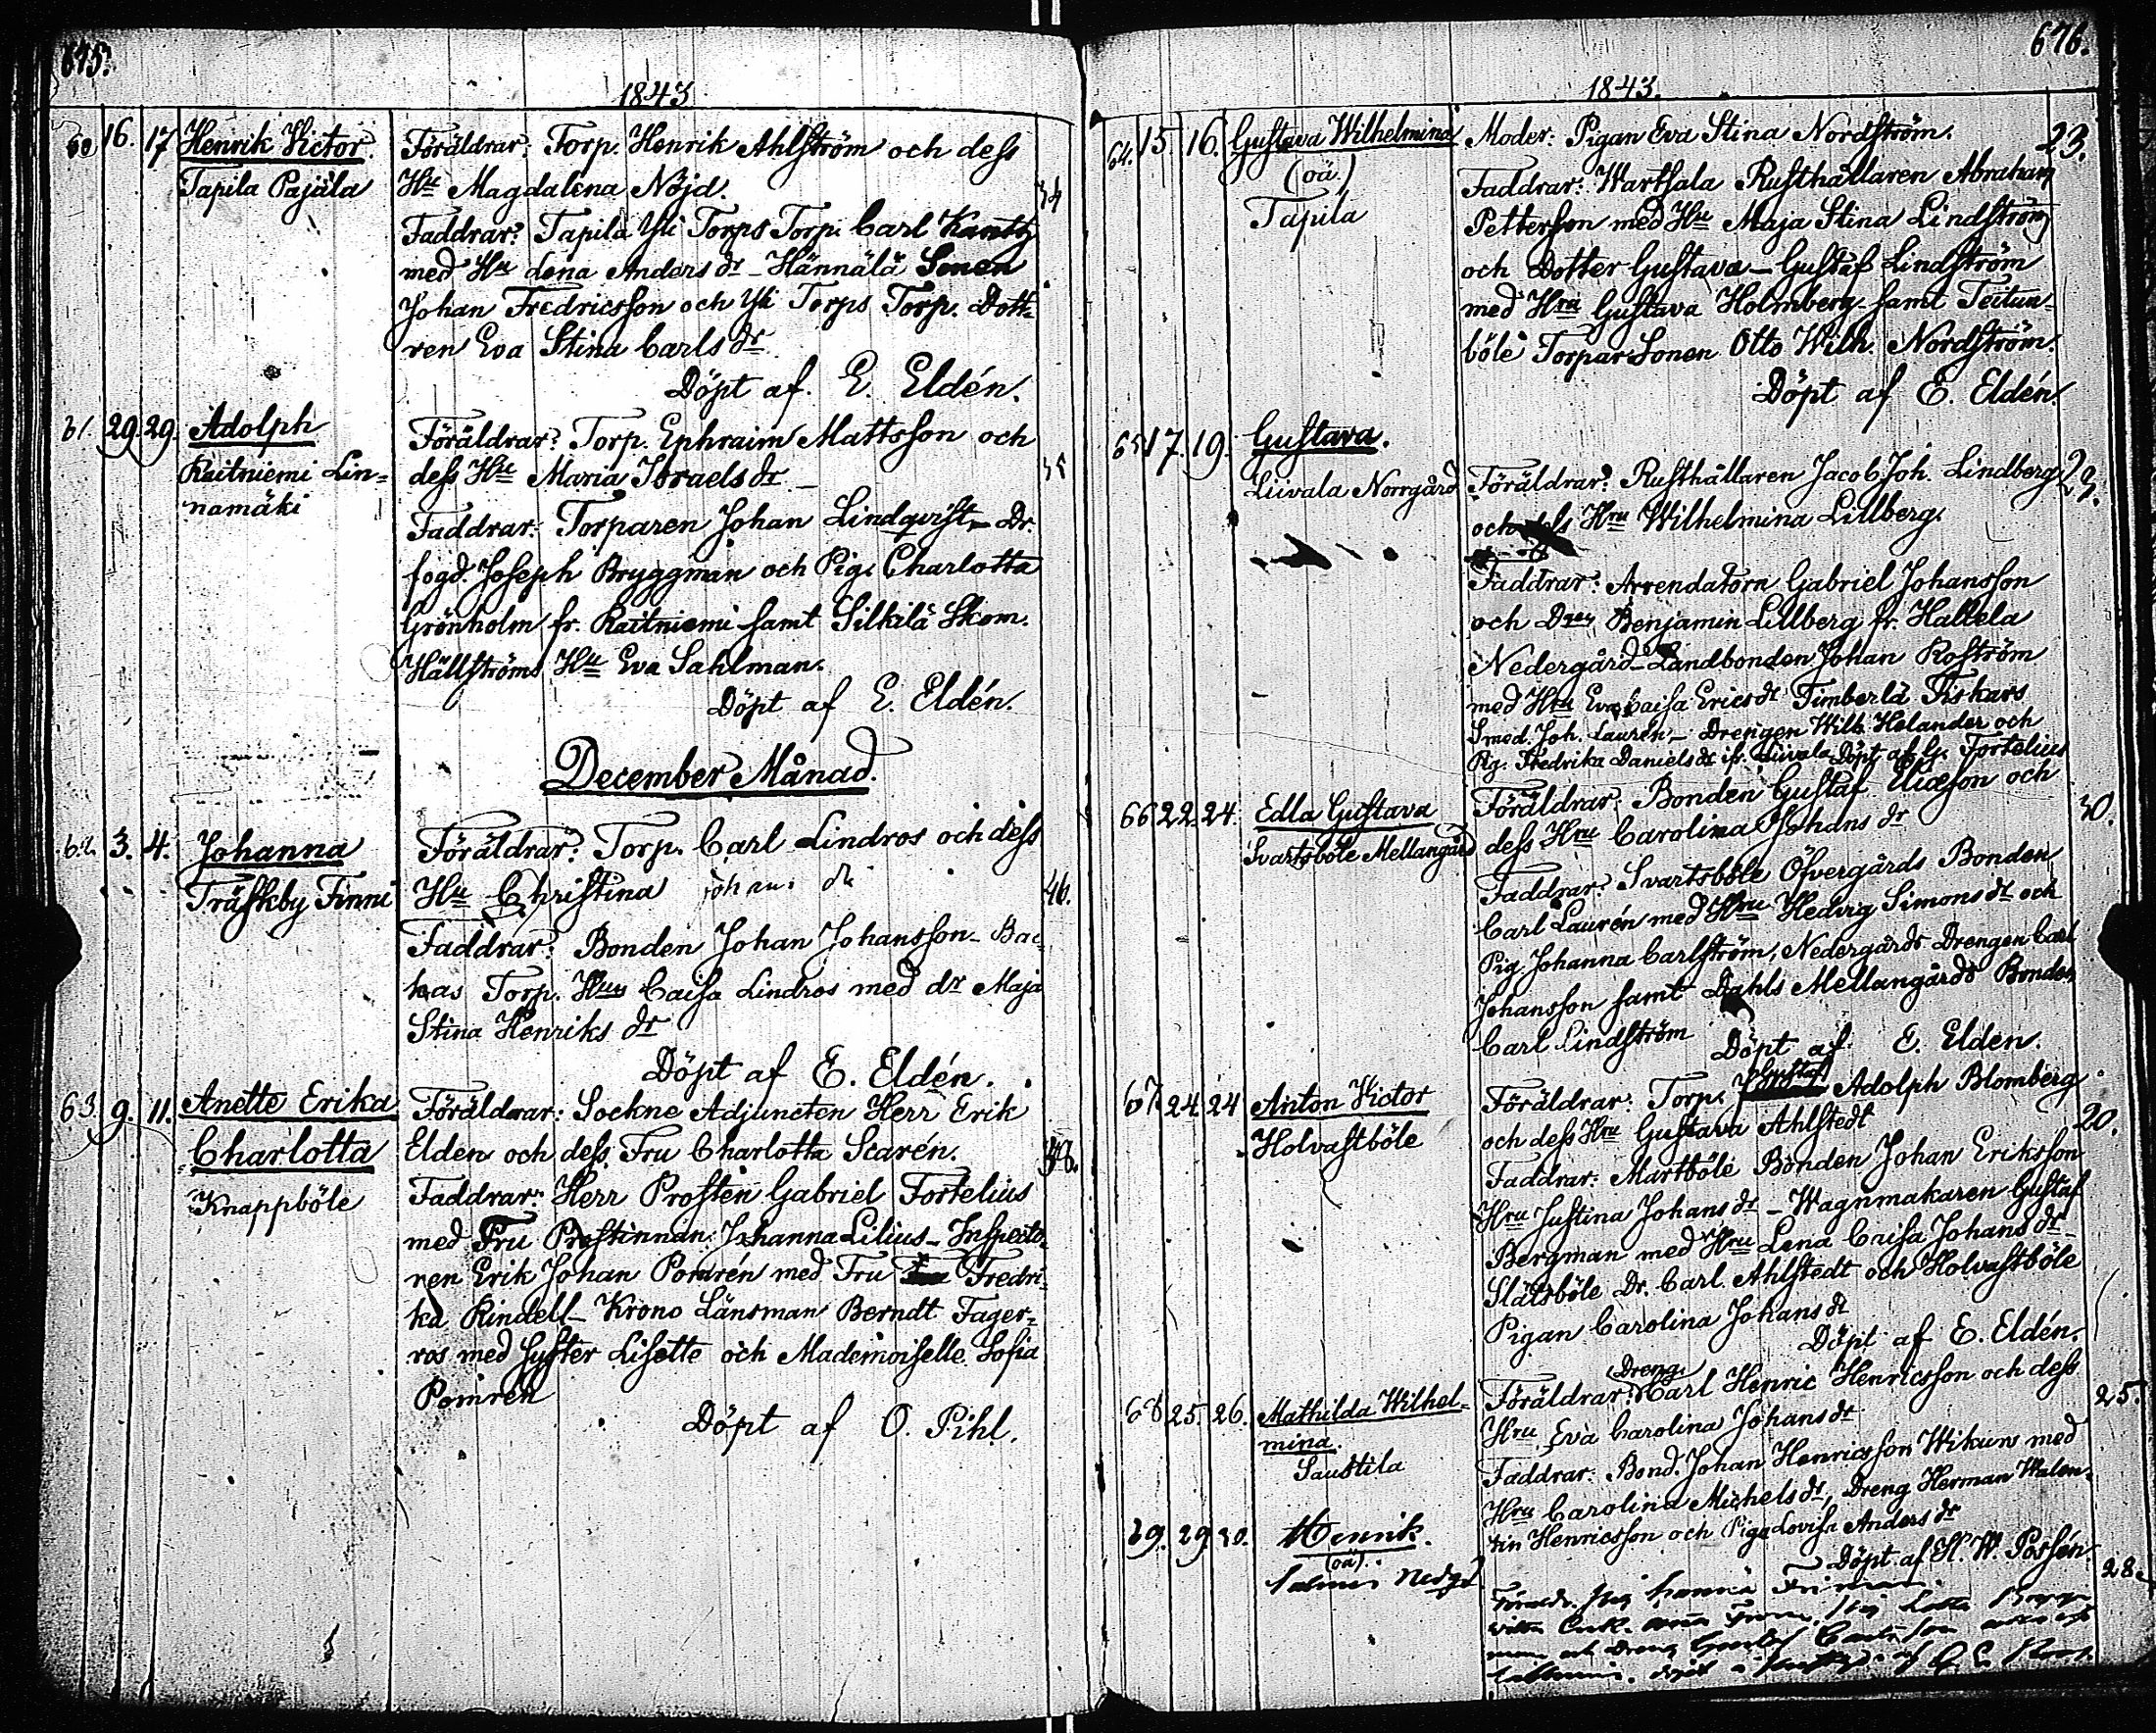 675.
1843
60 16. 17 Henrik Victor.
Tapila Pajäla
Föräldrar: Torp. Henrik Ahlström och dess
Hu Magdalena Nöjd.
34
Faddrar: Tapila Yli Torps Torp. Carl
med Hu Lena Anders dr - Hännälä Sonen
Johan Fredricsson och Yli Torps Torp. Dott-
ren Eva Stina Carls dr
Döpt af. E. Eldén.
61. 29. 29. Adolph
Raitniemi Lin=
namäki
Föräldrar: Torp. Ephraim Mattsson och
dess Hu Maria Israels dr -
35
Faddrar: Torparen Johan Lindqvist - Dr.
fogd. Joseph Bryggman och Pig. Charlotta
Grönholm fr. Raitniemi samt Silkilä Skom.
Hällströms Hu Eva Sahlman.
Döpt af E. Eldén.
December Månad.
62. 3. 4. Johanna
Träskby Finni
Föräldrar: Torp. Carl Lindros och dess
Hu Christina Johans dr
46.
Faddrar: Bonden Johan Johansson - Bac-
kas Torp. Hus Caisa Lindros med dr Maja
Stina Henriks dr
Döpt af E. Eldén.
63. 9. 11. Anette Erika
Charlotta
Knappböle
Föräldrar: Sockne Adjuncten Herr Erik
Elden och dess Fru Charlotta Scarén.
38.
Faddrar: Herr Prosten Gabriel Fortelius
med Fru Prostinnan Johanna Lilius - Inspecto-
ren Erik Johan Pomrén med Fru Fredri-
ka Rindell - Krono Länsman Berndt Fager=
ros med Syster Lisette och Mademoiselle Sofia
Pomrén
Döpt af O. Pihl.
676.
1843.
64. 15. 16. Gustava Wilhelmina
(oä.)
Tapila
Moder: Pigan Eva Stina Nordström.
23.
Faddrar: Wartsala Rusthållaren Abraham
Petterson med Hu Maja Stina Lindström
och Dotter Gustava - Gustaf Lindström
med Hru Gustava Holmberg samt Teitun-
böle Torpar Sonen Otto Wilh. Nordström.
Döpt af E. Eldén.
65 17. 19. Gustava.
Liivala Norrgård
Föräldrar: Rusthållaren Jacob Joh. Lindberg
23.
och dess Hru Wilhelmina Lillberg.
Faddrar: Arrendatorn Gabriel Johansson
och Benjamin Lillberg fr. Hallela
Nedergård - Landbonden Johan Roström
med Hru Eva Caisa Erics dr Timberlä Fiskars
Smed. Joh. Lauren - Drengen Wilh. Helander och
Pig. Fredrika Daniels dr ifr. Liivala Döpt af G. Fortelius
66. 22. 24. Edla Gustava
Svartsböle Mellangård
Föräldrar: Bonden Gustaf Eliæson och
30.
dess Hru Carolina Johans dr
Faddrar: Svartsböle Öfvergårds Bonden
Carl Laurén med Hru Hedvig Simons dr och
Pig. Johanna Carlström, Nedergårds Drengen Carl
Johansson samt Dahls Mellangårds Bonden
Carl Lindström
Döpt af E. Elden.
67. 24. 24 Anton Victor
Holvastböle
Gustaf
Föräldrar: Torp. Adolph Blomberg
20.
och dess Hru Gustava Ahlstedt
Faddrar: Martböle Bonden Johan Eriksson
Hru Justina Johans dr - Wagnmakaren Gustaf
Bergman med Hru Lena Caisa Johans dr -
Slätsböle Dr. Carl. Ahlstedt och Holvastböle
Pigan Carolina Johans dr
Döpt af E. Eldén.
68 25. 26. Mathilda Wilhel-
mina.
Saustila
Dreng
Föräldrar: Carl Henric Henricsson och dess
25.
Hru Eva Carolina Johans dr
Faddrar: Bond. Johan Henricsson Wikuns med
Hru Carolina Michels dr, Dreng Herman Walen-
tin Henricsson och Piga Lovisa Anders dr
Döpt af H. W. Possén.
69. 29. 30. Henrik.
(oä).
28.